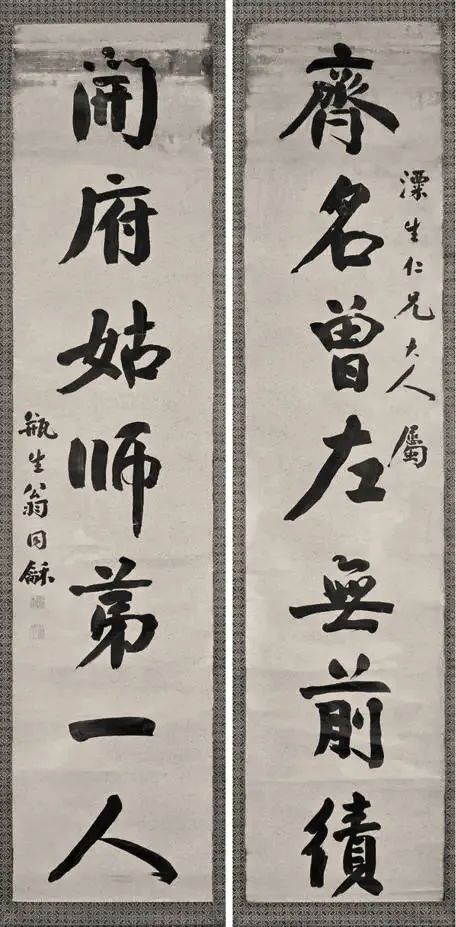 漂生仁兄大人屬
齊名曾左無前績
開府姑師苐一人
瓶生翁同龢